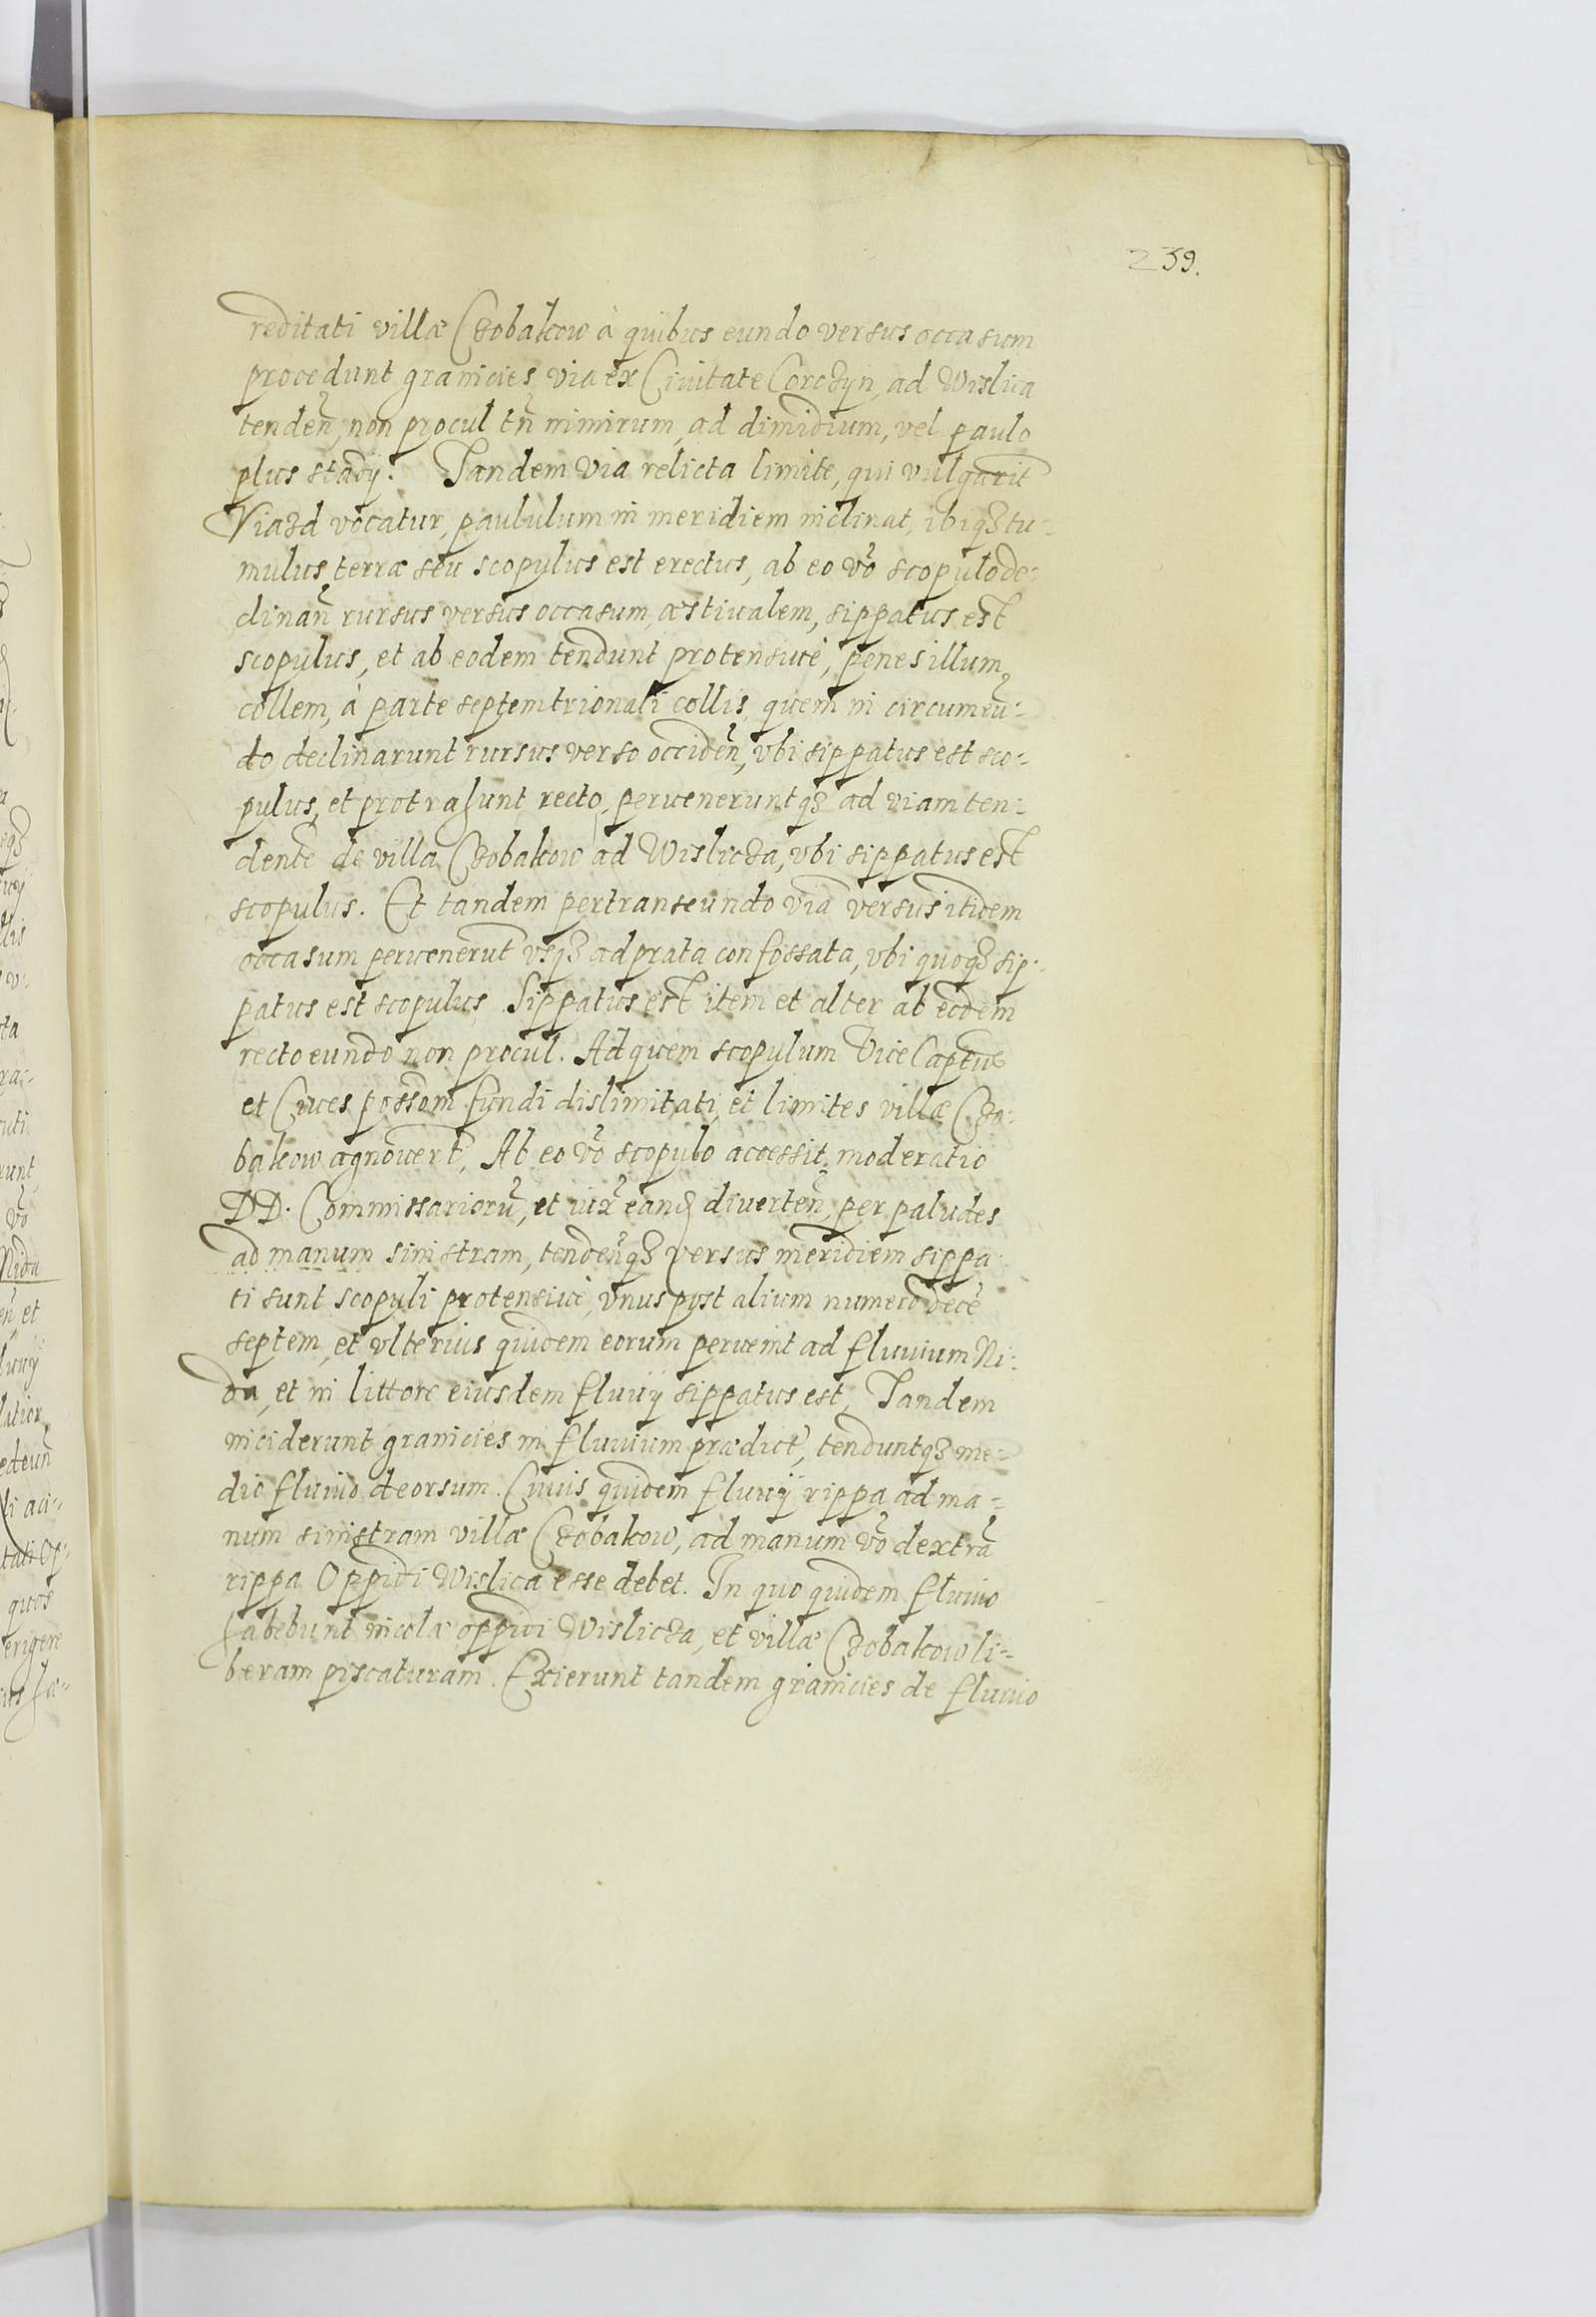 239.
reditati villæ Czobakow à quibus eundo versus occasum
procedunt granicies via ex Ciuitate Corczyn, ad Wislica
tendeñ, non procul tñ nimirum, ad dimidium, vel paulo
plus stadÿ. Tandem via relicta limite, qui vulgarit
Viazd vocatur, paululum in meridiem inclinat, ibiqꝫ tu-
mulus terræ seu scopulus est erectus, ab eo võ scopulo de-
clinañ rursus versus occasum æstiualem, sippatus est
scopulus, et ab eodem tendunt protensiuè, penes illum
collem, à parte septemtrionali collis, quem in circumeũ-
do declinarunt rursus verso occideñ, vbi sippatus est sco-
pulus, et protrahunt recto, perueneruntqꝫ ad viam ten-
dentẽ de villa Czobakow ad Wislicza, vbi sippatus est
scopulus. Et tandem pertranseundo viã versus itidem
occasum peruenerũt vsqꝫ ad prata confossata, vbi quoqꝫ sip-
patus est scopulus. Sippatus est item et alter ab eodem
recto eundo non procul. Ad quem scopulum Vice Captũs
et Ciues possom̃ fundi dislimitati, et limites villæ Czo-
bakow agnouer̃t, Ab eo võ scopulo accessit moderatio
DD. Commissariorũ, et iux̃ eand diuerteñ, per paludes
ad manum sinistram, tendeñqꝫ versus meridiem sippa-
ti sunt scopuli protensiuè, vnus post alium numero decẽ
septem, et vlterius quidem eorum peruenit ad fluuium Ni-
da, et in littore eiusdem fluuÿ sippatus est, Tandem
inciderunt granicies in fluuium prædict̃, tenduntqꝫ me-
dio fluuio deorsum. Cuius quidem fluuÿ rippa ad ma-
num sinistram villæ Czobakow, ad manum võ dextrã
rippa Oppidi Wislica esse debet. In quo quidem fluuio
habebunt incolæ oppidi Wislicza, et villæ Czobakow li-
beram piscaturam. Exierunt tandem granicies de fluuio